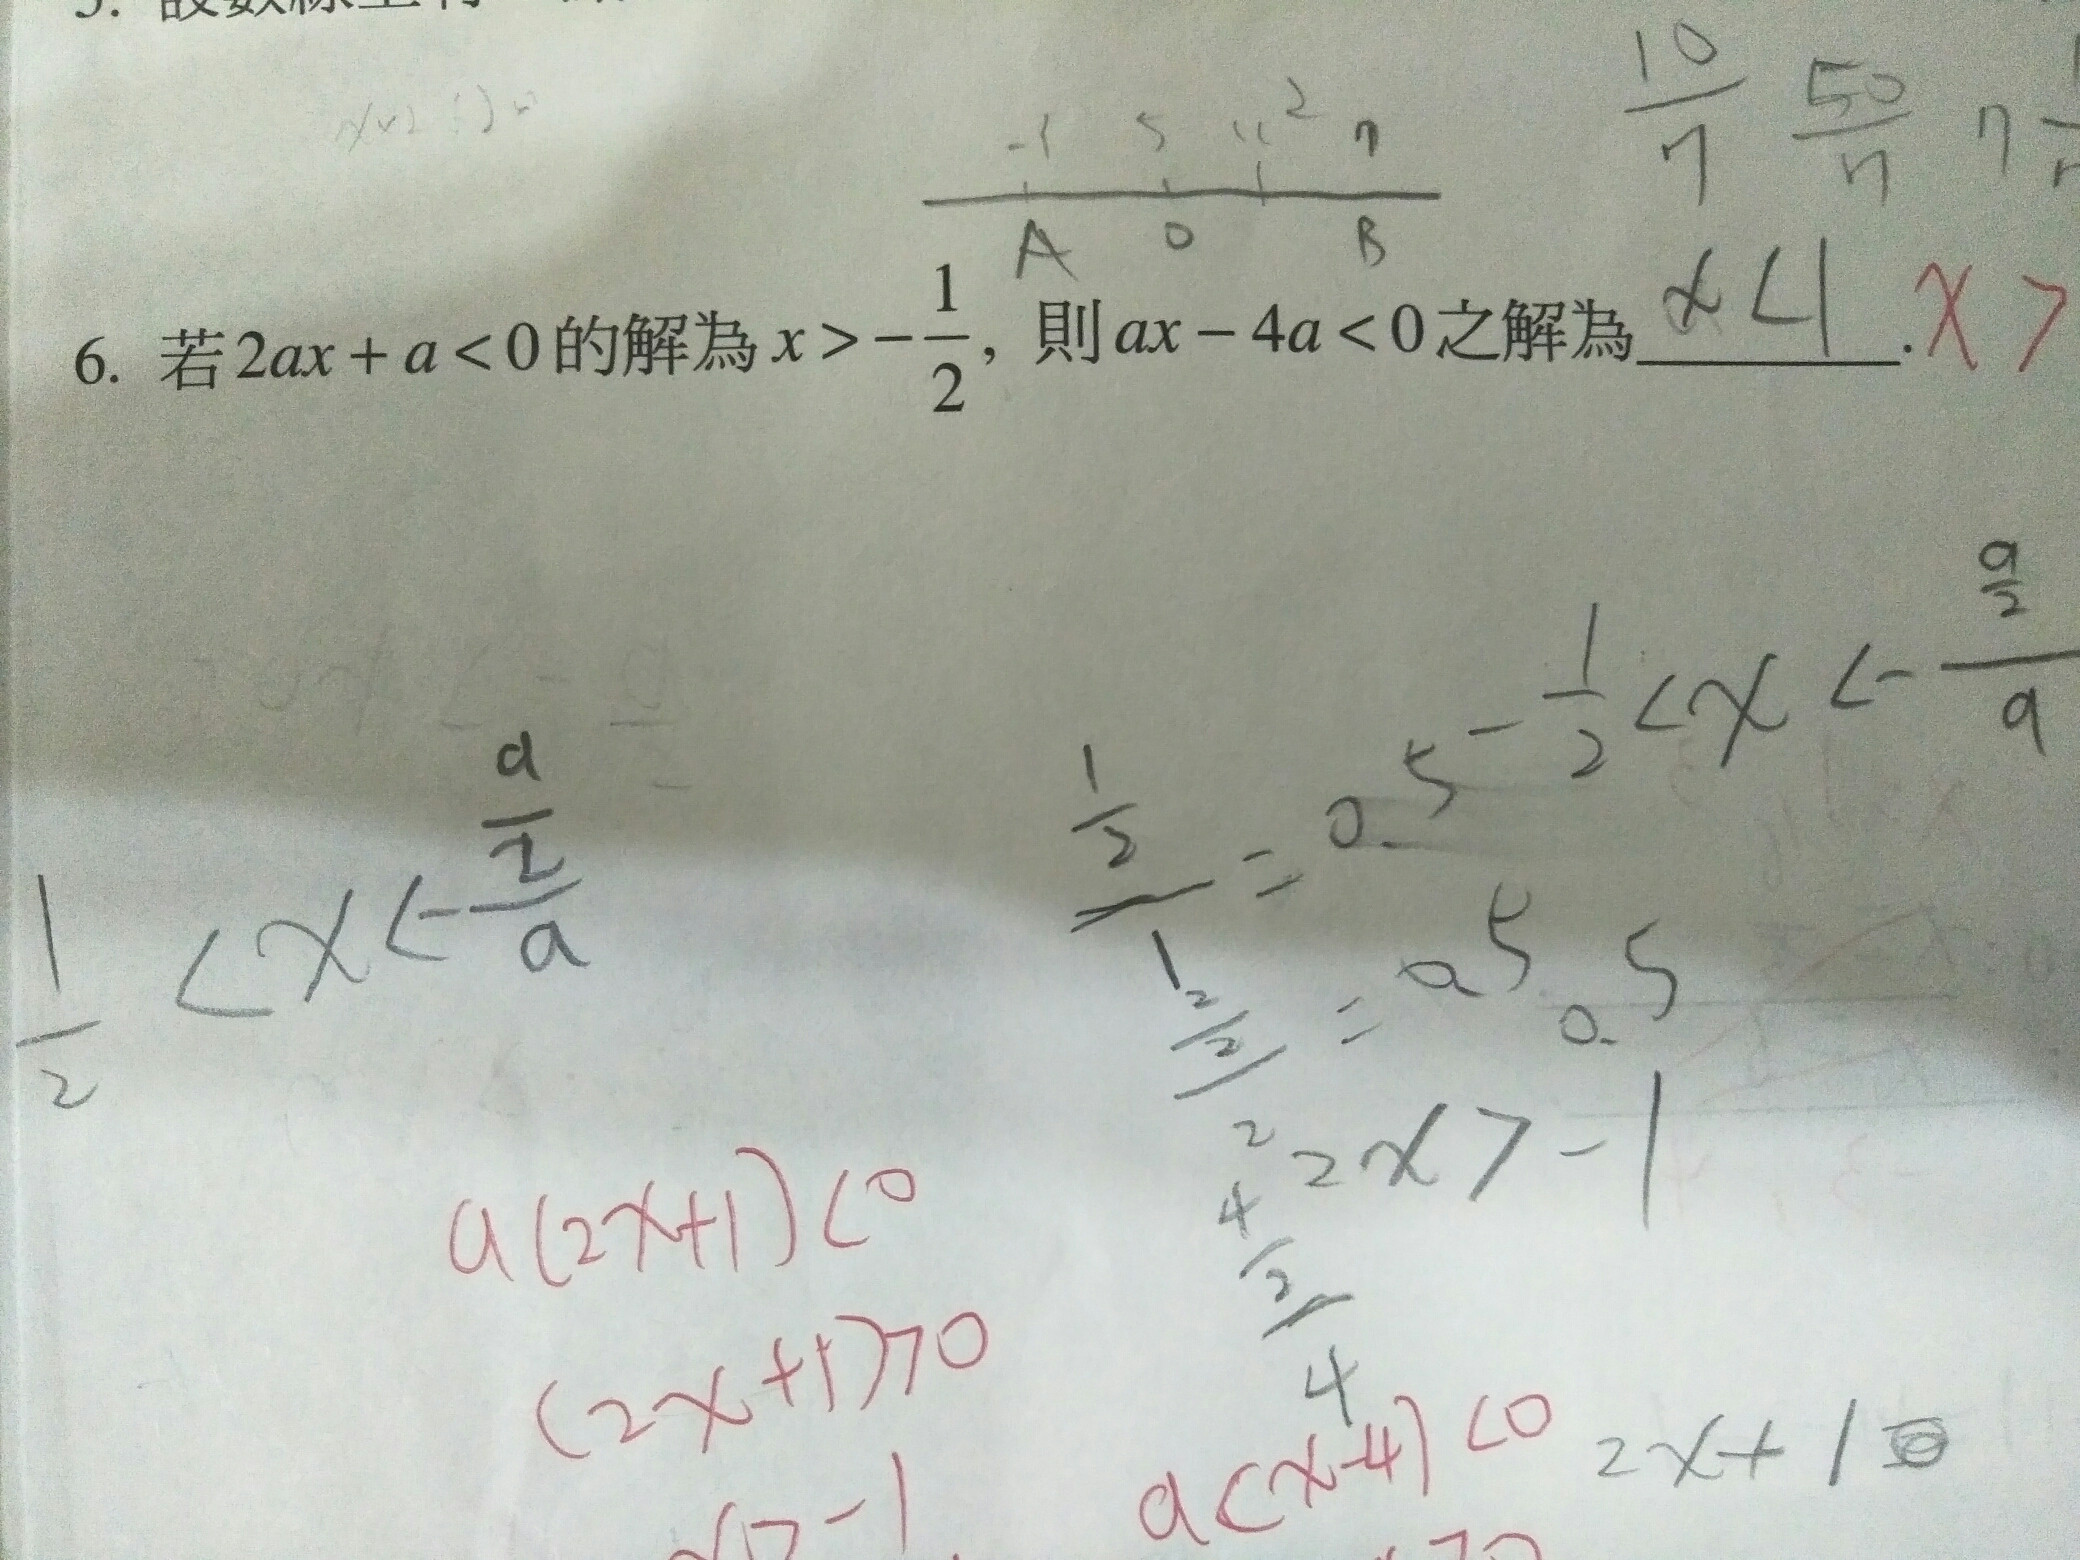 -1 5 11 2 7
A 0 B
10/7 50/7 7
6. 若2ax+a<0的解為x>-1/2, 則ax-4a<0之解為 x<1. x>
-1/2<x<-a/2/a
1/2<x<-a/2/a
1/2/1=0.5
2/2/2=0.5 0.5
2x>-1
4/2/4
a(2x+1)<0
(2x+1)>0
a(x-4)<0
2x+1
x>-1